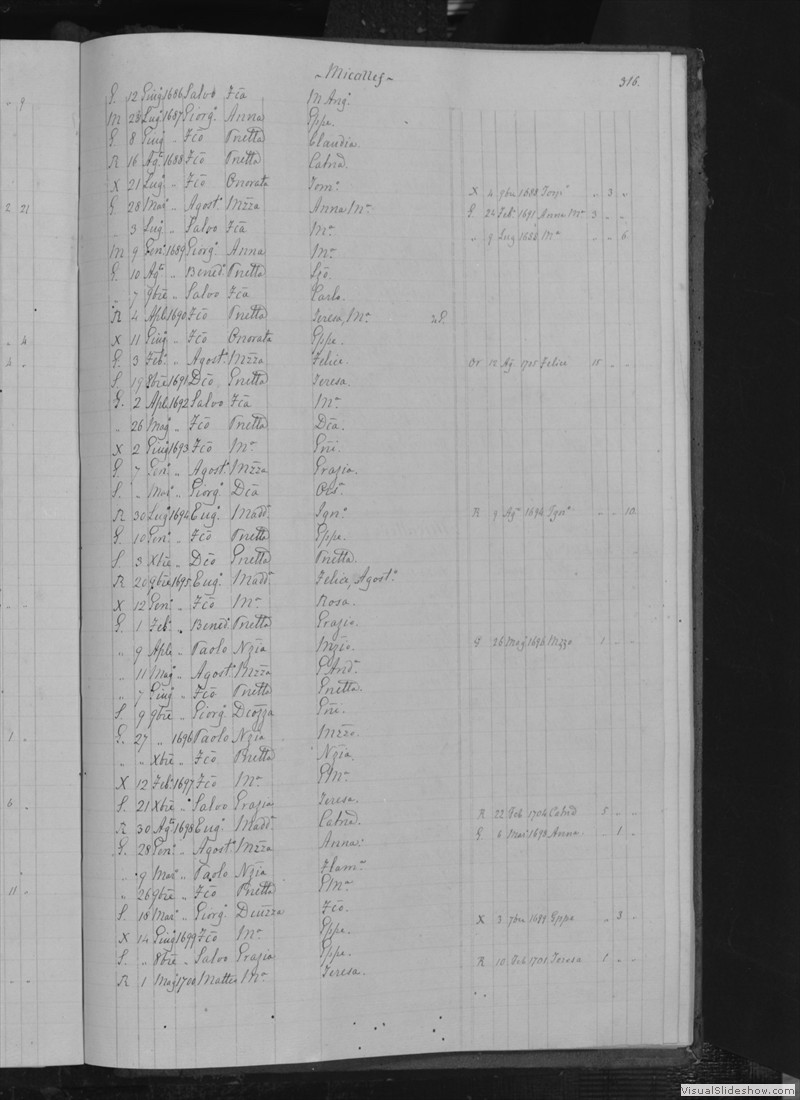 ~ Micallef ~ 316.
G. 12 Giug 1686 Salvo Fca M Ang.
M 28 Lug 1687 Giorg. Anna Gppe.
G 8 Giug " Fco Pnetta Claudia.
R 16 Agt 1688 Fco Pnetta Catna.
X 21 Lug. " Fco Onorata Tom. X 4 9bre 1688 Tom " 3 "
G 28 Mar " Agost. Mzza Anna Ma. G. 24 Feb. 1691 Anna Ma 3 " "
" 3 Lug " Salvo Fca Ma. " 9 Lug 1688 Ma " " 6
M 9 Gen. 1689 Giorg. Anna Ma.
G. 10 Agt " Bened. Pnetta
" 7 9bre " Salvo Fca Carlo.
R 4 Aple 1690 Fco Pnetta Teresa, Ma.
X 11 Giug " Fco Onorata Gppe.
G. 3 Feb. " Agost. Mzza Felice. 12 Ag. 1715 Felice 15 " "
S. 19 8bre 1691 Dco Gnetta Teresa.
G. 2 Aple 1692 Salvo Fca Ma.
" 26 Mag " Fco Pnetta Dca.
X 2 Giug 1693 Fco Ma Gni.
G. 7 Gen. " Agost. Mzza Grazia.
S. " Mar. " Giorg. Dca
R 30 Lug 1694 Eug. Madd. Ign. R 9 Agt 1694 Ign. " " 10
G. 10 Gen. " Fco Pnetta Gppe.
S. 3 Xbre " Dco Gnetta Pnetta.
R 20 9bre 1695 Eug. Madd. Felice, Agost.
X 12 Gen. " Fco Ma Rosa.
G. 1 Feb. " Bened. Pnetta Grazia.
" 9 Aple " Paolo Nzia Mzzo. G 26 Mag 1696 Mzzo 1 " "
" 11 Mag " Agost. Mzza G And.
" 7 Giug " Fco Pnetta Gnetta.
S. 9 9bre " Giorg. Gni.
G. 27 " 1696 Paolo Nzia Mzzo.
" " Xbre " Fco Pnetta Nzia.
X 12 Feb. 1697 Fco Ma GMa.
S. 21 Xbre " Salvo Grazia Teresa.
R 30 Agt 1698 Eug. Madd. Catna. R 22 Feb 1704 Catna 5 " "
G. 28 Gen. " Agost. Mzza Anna. G. 6 Mar. 1698 Anna " 1 "
" 9 Mar. " Paolo Nzia Flam.
" 26 9bre " Fco Pnetta GMa.
S. 16 Mar. " Giorg. Fco.
X 14 Giug 1699 Fco Ma Gppe. X 3 7bre 1699 Gppa " 3 "
S. " 8bre " Salvo Grazia Gppe.
R 1 Mag 1700 Matteo Ma Teresa. R 10 Feb 1701 Teresa 1 " "
VisualSlideshow.com